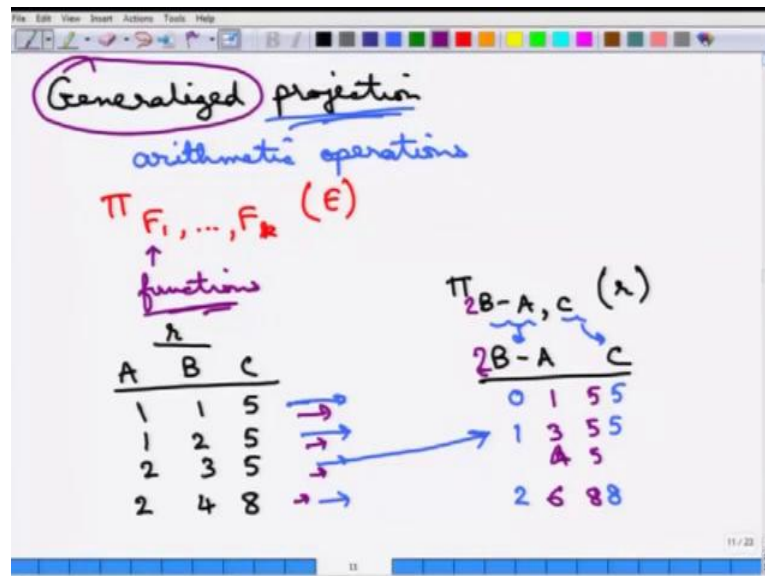 File Edit View Insert Actions Tools Help
Generalized projection
arithmetic operations
π F₁, ..., Fₖ (E)
↑
functions
r
A B C
1 1 5
1 2 5
2 3 5
2 4 8
π 2B-A, C (r)
2B-A C
0 1 5 5
1 3 5 5
4 5
2 6 8 8
11 / 23
11